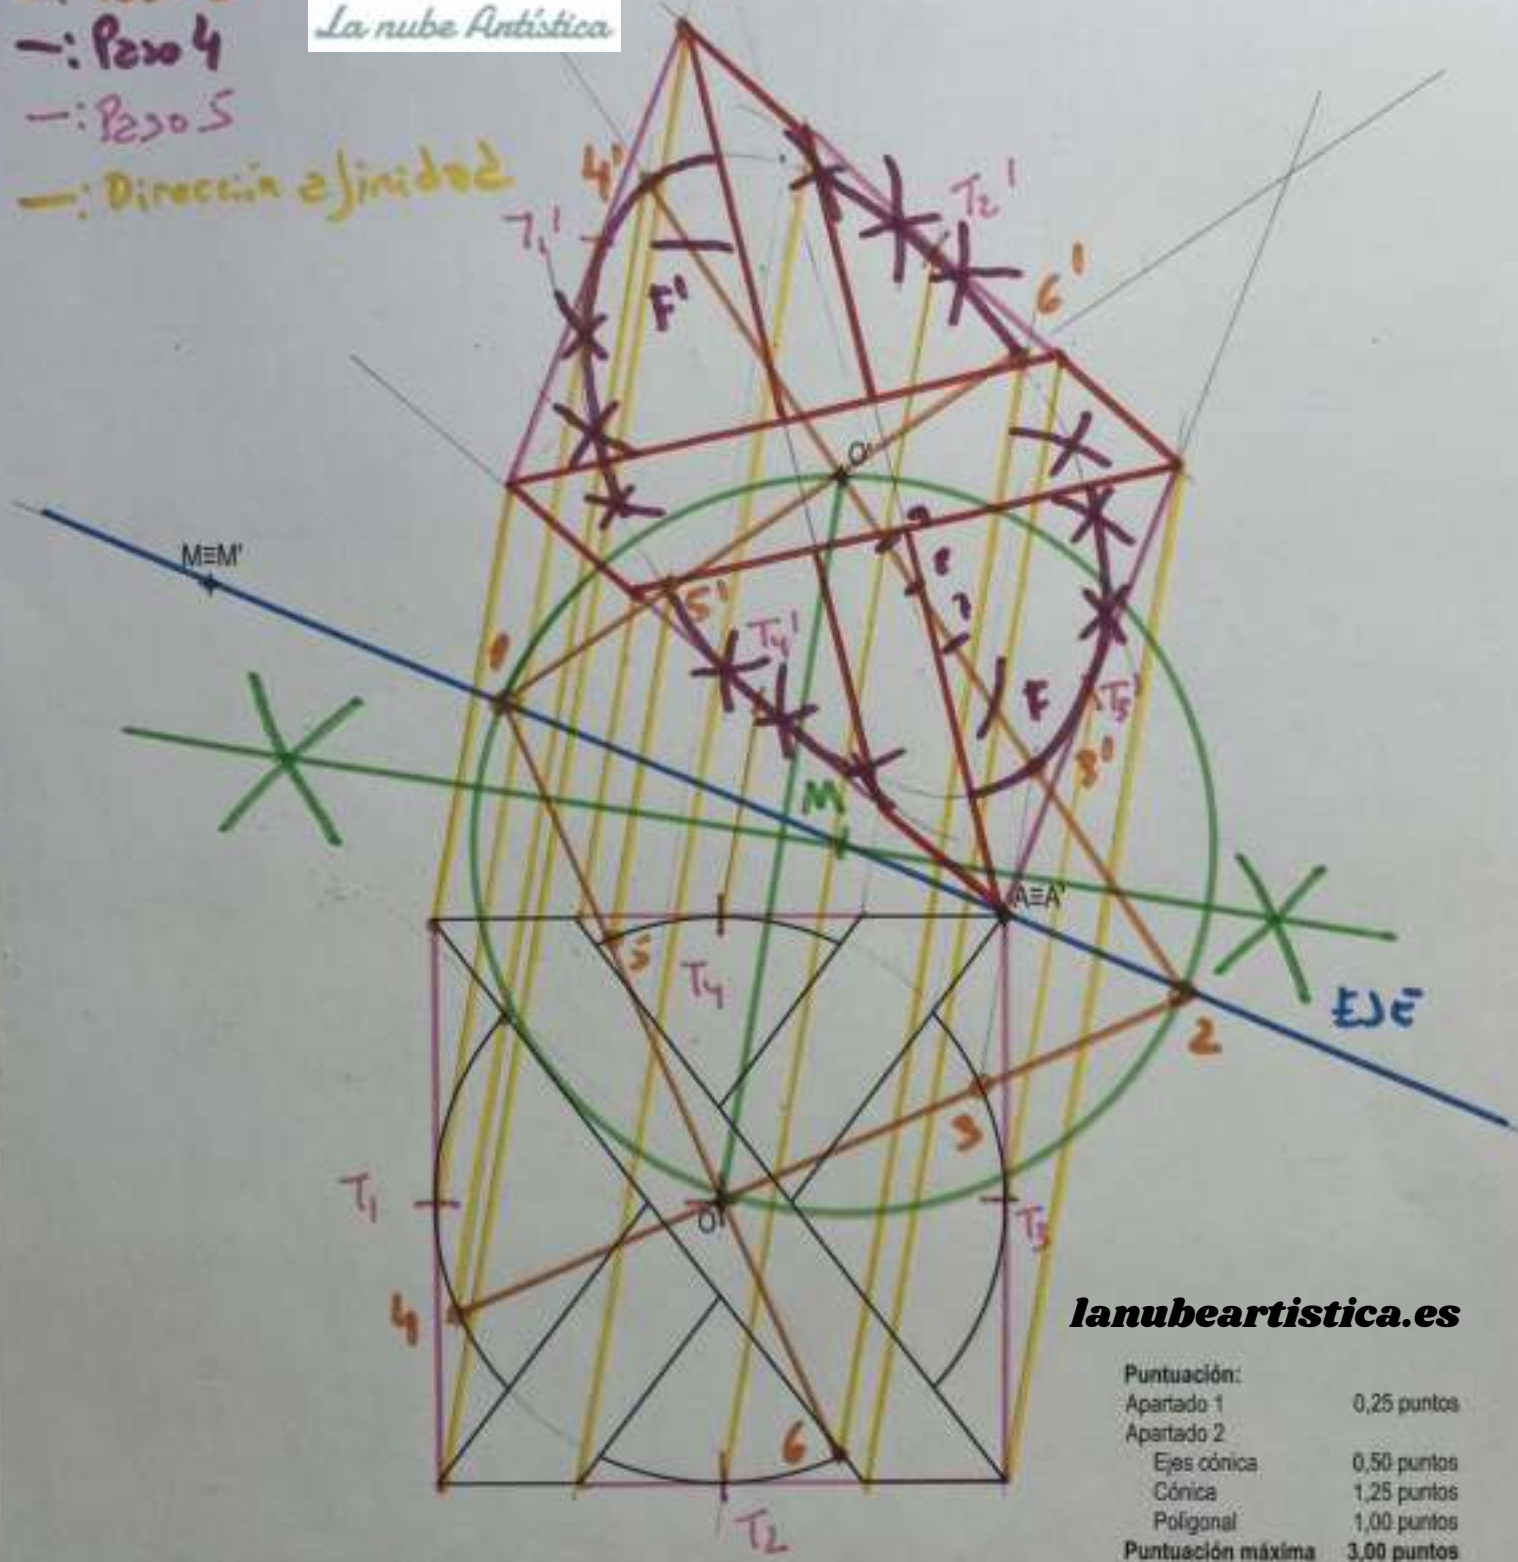 La nube Artística
—: Paso 4
—: Paso 5
—: Dirección afinidad
4'
T1'
T2'
6'
F'
O'
M≡M'
9
8
7
5'
T4'
1
F
T3'
3'
M
A≡A'
EJE
5
T4
2
3
T1
O
T3
4
6
T2
lanubeartistica.es
Puntuación:
Apartado 1 0,25 puntos
Apartado 2
Ejes cónica 0,50 puntos
Cónica 1,25 puntos
Poligonal 1,00 puntos
Puntuación máxima 3,00 puntos